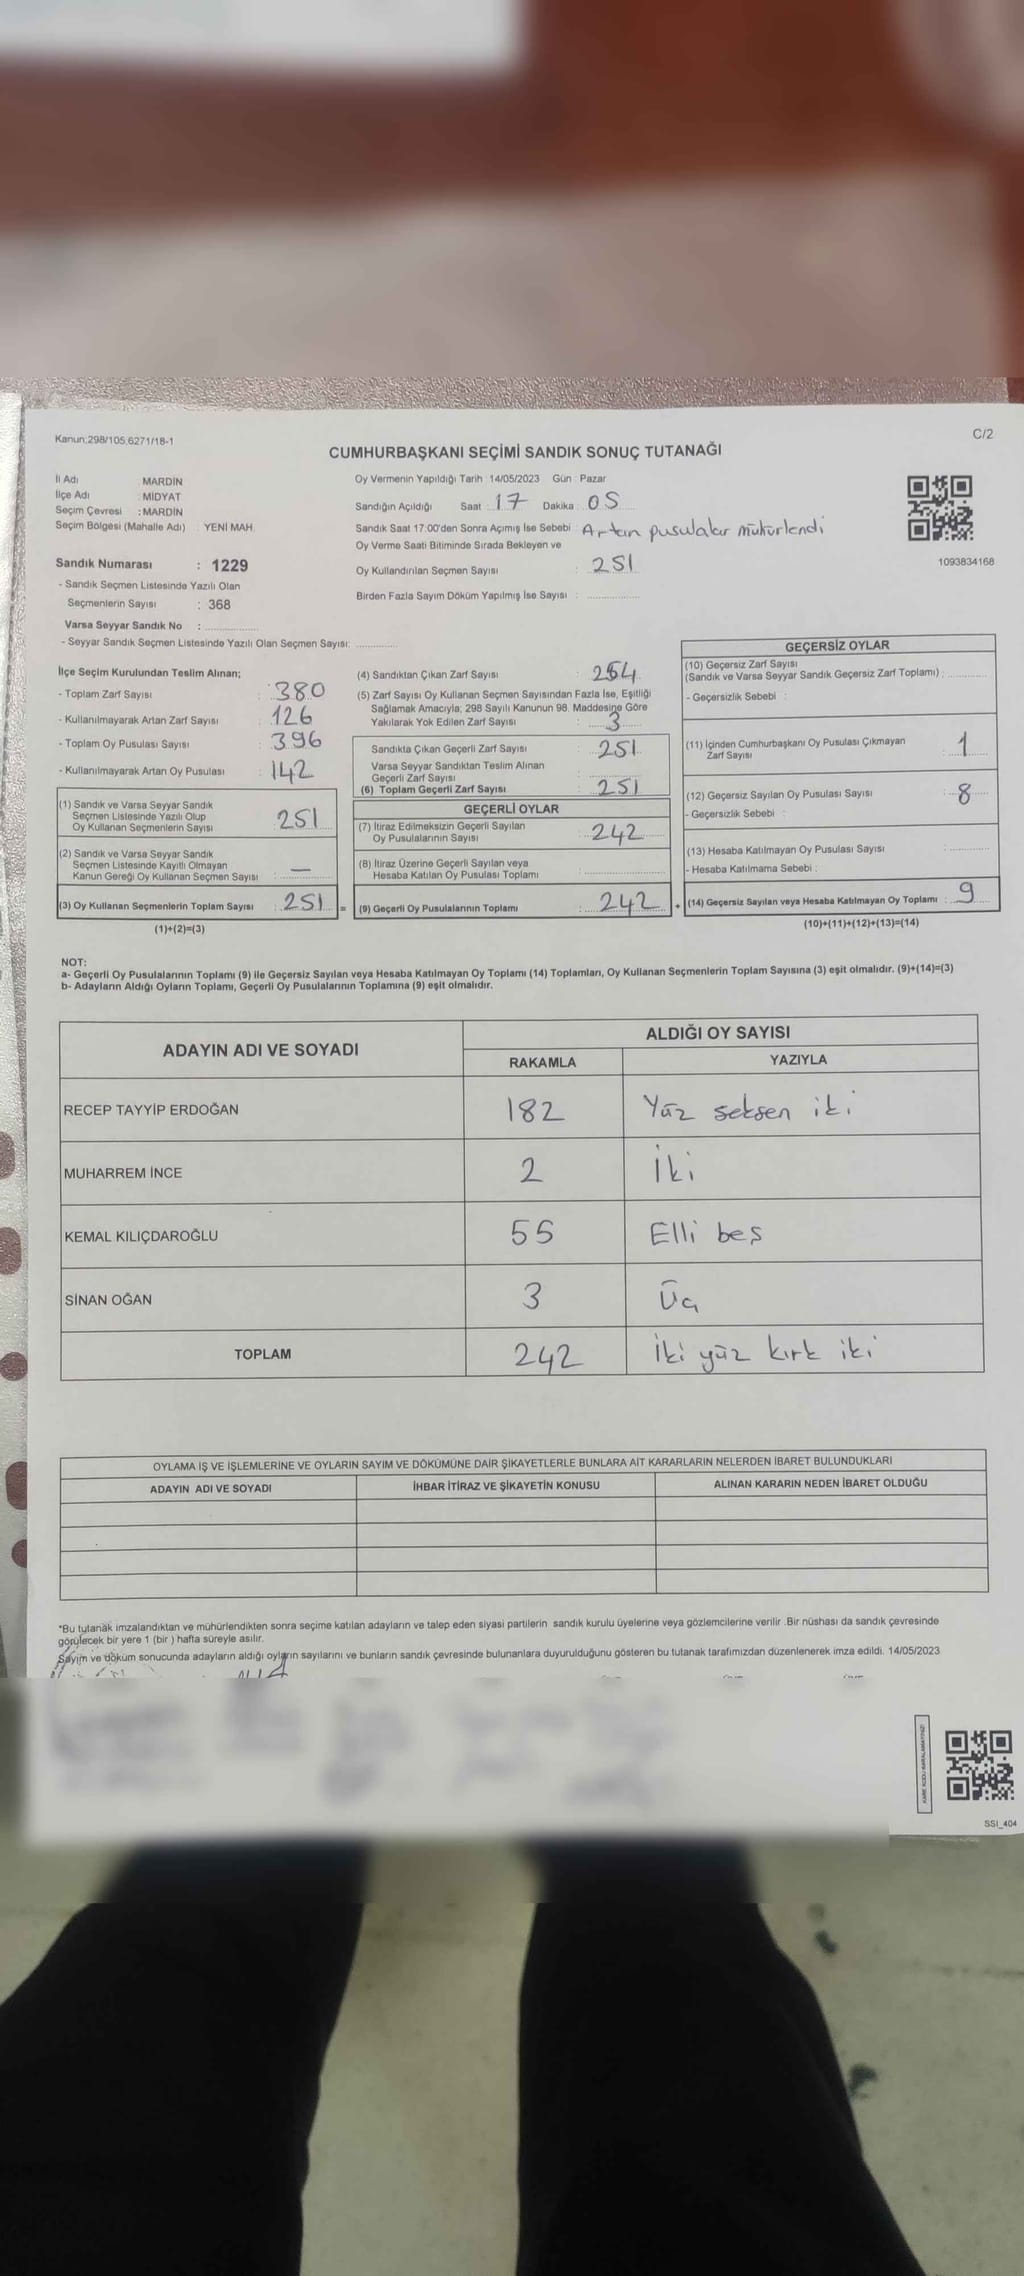 Kanun;298/105,6271/18-1
C/2
CUMHURBAŞKANI SEÇİMİ SANDIK SONUÇ TUTANAĞI
İl Adı MARDİN
İlçe Adı MİDYAT
Seçim Çevresi : MARDİN
Seçim Bölgesi (Mahalle Adı) : YENİ MAH
Sandık Numarası : 1229
- Sandık Seçmen Listesinde Yazılı Olan
Seçmenlerin Sayısı : 368
Varsa Seyyar Sandık No :
- Seyyar Sandık Seçmen Listesinde Yazılı Olan Seçmen Sayısı:
Oy Vermenin Yapıldığı Tarih : 14/05/2023 Gün : Pazar
Sandığın Açıldığı Saat : 17 Dakika : 05
Sandık Saat 17:00'den Sonra Açımış İse Sebebi : Artan pusulalar mühürlendi
Oy Verme Saati Bitiminde Sırada Bekleyen ve
Oy Kullandırılan Seçmen Sayısı : 251
Birden Fazla Sayım Döküm Yapılmış İse Sayısı :
1093834168
İlçe Seçim Kurulundan Teslim Alınan;
- Toplam Zarf Sayısı : 380
- Kullanılmayarak Artan Zarf Sayısı : 126
- Toplam Oy Pusulası Sayısı : 396
- Kullanılmayarak Artan Oy Pusulası : 142
(1) Sandık ve Varsa Seyyar Sandık
Seçmen Listesinde Yazılı Olup
Oy Kullanan Seçmenlerin Sayısı : 251
(2) Sandık ve Varsa Seyyar Sandık
Seçmen Listesinde Kayıtlı Olmayan
Kanun Gereği Oy Kullanan Seçmen Sayısı : —
(3) Oy Kullanan Seçmenlerin Toplam Sayısı : 251 =
(1)+(2)=(3)
(4) Sandıktan Çıkan Zarf Sayısı : 254
(5) Zarf Sayısı Oy Kullanan Seçmen Sayısından Fazla İse, Eşitliği
Sağlamak Amacıyla; 298 Sayılı Kanunun 98. Maddesine Göre
Yakılarak Yok Edilen Zarf Sayısı : 3
Sandıkta Çıkan Geçerli Zarf Sayısı : 251
Varsa Seyyar Sandıktan Teslim Alınan
Geçerli Zarf Sayısı :
(6) Toplam Geçerli Zarf Sayısı : 251
GEÇERLİ OYLAR
(7) İtiraz Edilmeksizin Geçerli Sayılan
Oy Pusulalarının Sayısı : 242
(8) İtiraz Üzerine Geçerli Sayılan veya
Hesaba Katılan Oy Pusulası Toplamı :
(9) Geçerli Oy Pusulalarının Toplamı : 242 +
GEÇERSİZ OYLAR
(10) Geçersiz Zarf Sayısı
(Sandık ve Varsa Seyyar Sandık Geçersiz Zarf Toplamı) :
- Geçersizlik Sebebi :
(11) İçinden Cumhurbaşkanı Oy Pusulası Çıkmayan
Zarf Sayısı : 1
(12) Geçersiz Sayılan Oy Pusulası Sayısı : 8
- Geçersizlik Sebebi :
(13) Hesaba Katılmayan Oy Pusulası Sayısı :
- Hesaba Katılmama Sebebi :
(14) Geçersiz Sayılan veya Hesaba Katılmayan Oy Toplamı : 9
(10)+(11)+(12)+(13)=(14)
NOT:
a- Geçerli Oy Pusulalarının Toplamı (9) ile Geçersiz Sayılan veya Hesaba Katılmayan Oy Toplamı (14) Toplamları, Oy Kullanan Seçmenlerin Toplam Sayısına (3) eşit olmalıdır. (9)+(14)=(3)
b- Adayların Aldığı Oyların Toplamı, Geçerli Oy Pusulalarının Toplamına (9) eşit olmalıdır.
ADAYIN ADI VE SOYADI
ALDIĞI OY SAYISI
RAKAMLA YAZIYLA
RECEP TAYYİP ERDOĞAN 182 Yüz seksen iki
MUHARREM İNCE 2 İki
KEMAL KILIÇDAROĞLU 55 Elli beş
SİNAN OĞAN 3 Üç
TOPLAM 242 İki yüz kırk iki
OYLAMA İŞ VE İŞLEMLERİNE VE OYLARIN SAYIM VE DÖKÜMÜNE DAİR ŞİKAYETLERLE BUNLARA AİT KARARLARIN NELERDEN İBARET BULUNDUKLARI
ADAYIN ADI VE SOYADI İHBAR İTİRAZ VE ŞİKAYETİN KONUSU ALINAN KARARIN NEDEN İBARET OLDUĞU
*Bu tutanak imzalandıktan ve mühürlendikten sonra seçime katılan adayların ve talep eden siyasi partilerin sandık kurulu üyelerine veya gözlemcilerine verilir .Bir nüshası da sandık çevresinde
görülecek bir yere 1 (bir ) hafta süreyle asılır.
Sayım ve döküm sonucunda adayların aldığı oyların sayılarını ve bunların sandık çevresinde bulunanlara duyurulduğunu gösteren bu tutanak tarafımızdan düzenlenerek imza edildi. 14/05/2023
KARE KODU KARALAMAYINIZ!
SSI_404